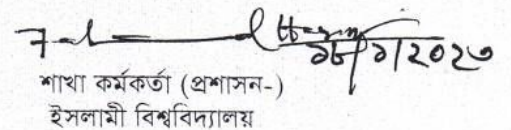 ১৮/১/২০২৩
শাখা কর্মকর্তা (প্রশাসন-)
ইসলামী বিশ্ববিদ্যালয়